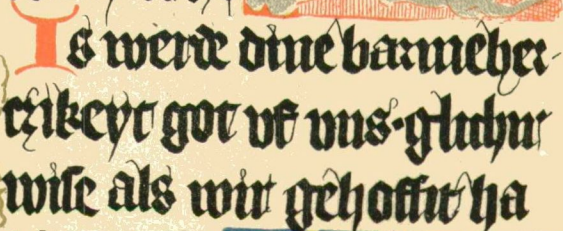 Is werde dine barmeher-
czikeyt got vf vns·glichir
wiſe als wir gehoffit ha